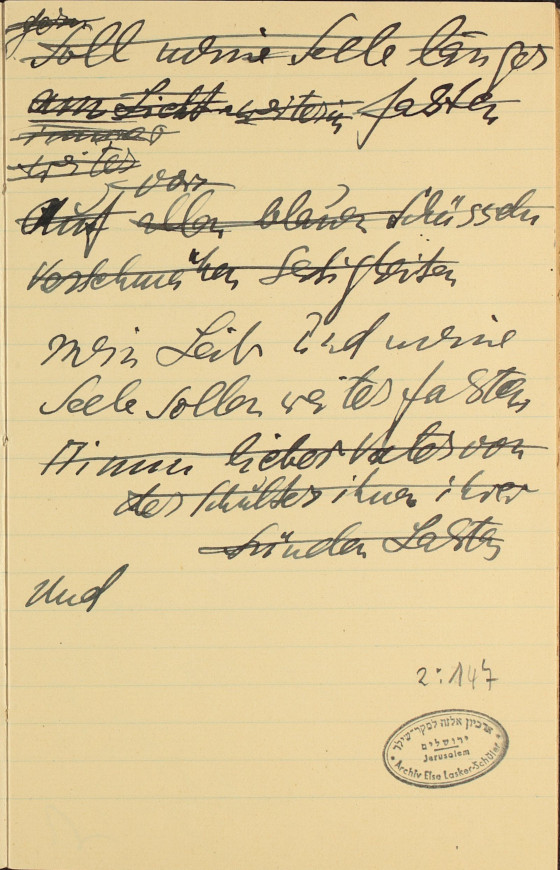 gern
Soll meine Seele länger
am Licht weiterin fasten
immer
weiter
von
Auf allen blauen Schüsseln
Verschmähen Seligkeiten
Mein Leib Und meine
Seele sollen weiter fasten
Nimm lieber Vater von
der Schulter ihnen ihrer
Sünden Lasten
Und
2:147
ארכיון אלזה לסקר-שילר
ירושלים
Jerusalem
Archiv Else Lasker-Schüler